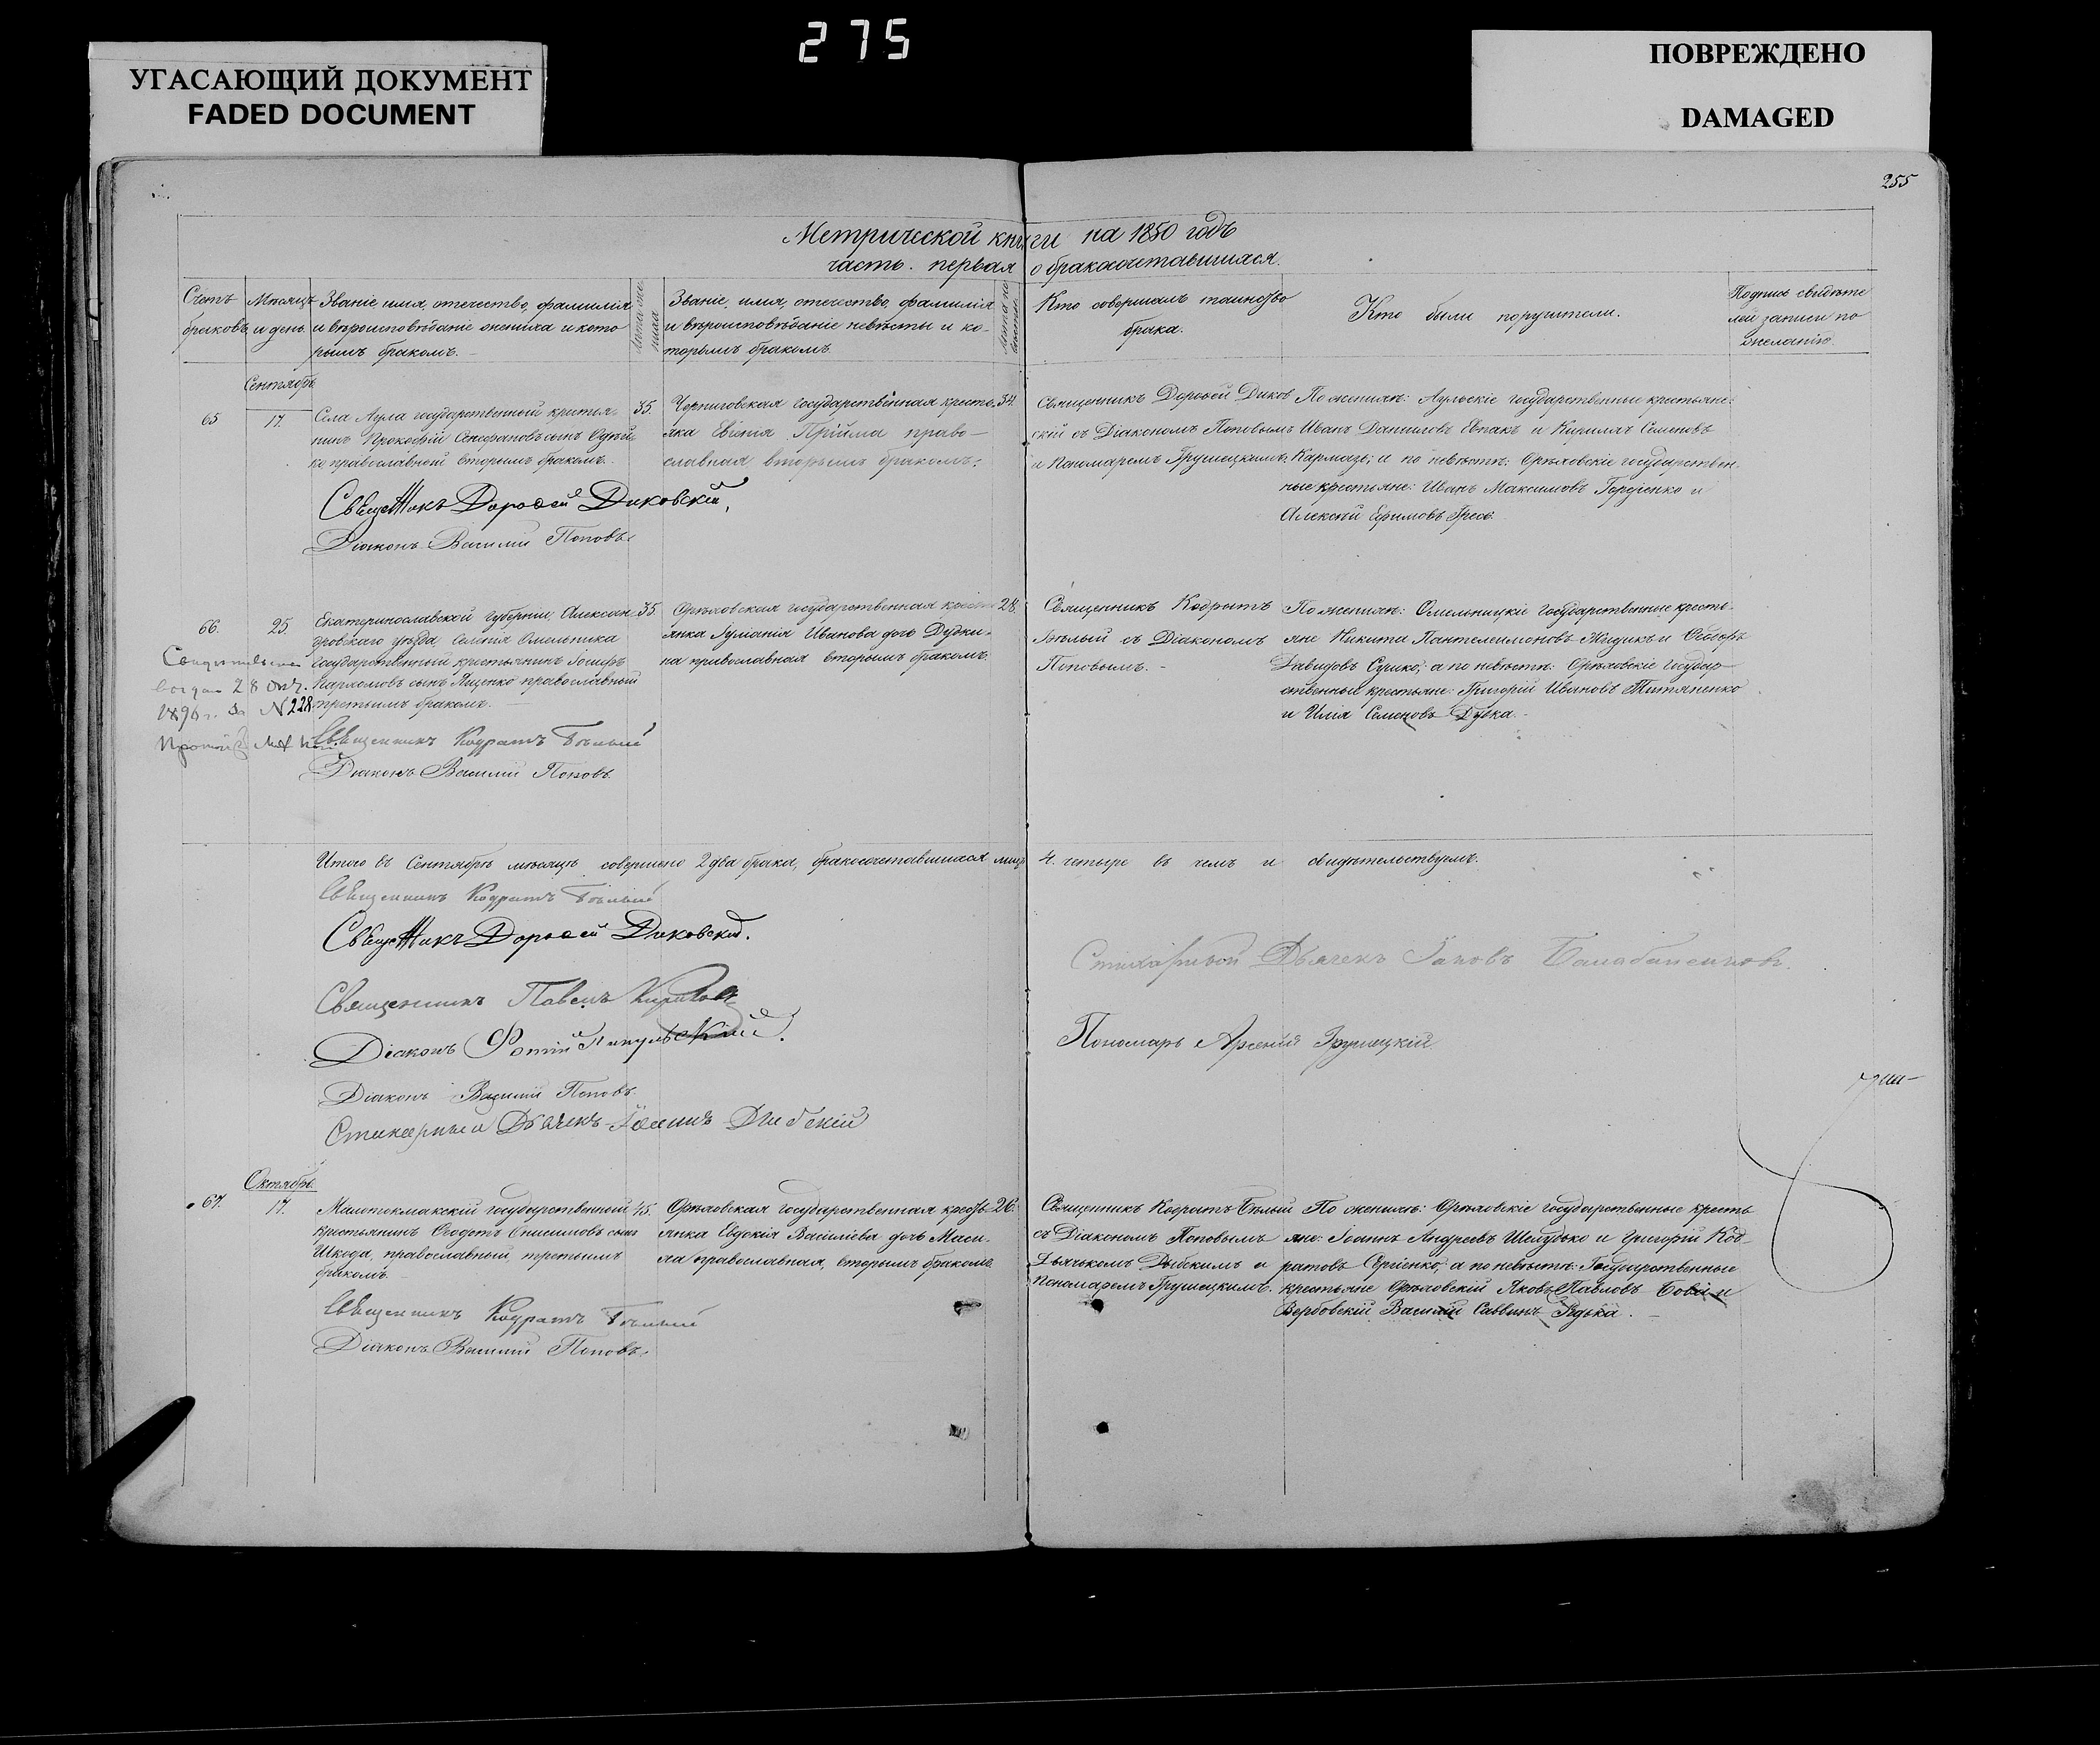 275
УГАСАЮЩИЙ ДОКУМЕНТ
FADED DOCUMENT
ПОВРЕЖДЕНО
DAMAGED
255
Метрической книги на 1850 годъ
часть первая о бракосочетавшихся.
Счетъ браковъ
Мѣсяцъ и день.
Званіе имя, отечество, фамилія
и вѣроисповѣданіе жениха и кото
рымъ бракомъ.
Лѣта жениха
Званіе, имя, отечество, фамилія
и вѣроисповѣданіе невѣсты и ко-
торымъ бракомъ.
Лѣта невѣсты
Кто совершалъ таинство
брака.
Кто были поручители.
Подпись свидѣте
лей записи по
желанію.
Сентябрь
65
17.
Села Аула государственный крестья-
нинъ Прокофій сынъ
православной вторымъ бракомъ.
35.
Черниговская государственная кресть-
янка Евгенія Прійма право-
славная вторымъ бракомъ.
34.
Священникъ Дорофей Диков
скій съ Діакономъ Поповымъ
и Пономаремъ Грушецкимъ.
По женихѣ: Аульскіе государственные крестьяне:
Иванъ Даниловъ Евпакъ и Кирилъ Семеновъ
Кармазь; и по невѣстѣ: Орѣховскіе государствен-
ные крестьяне: Иванъ Максимовъ и
Алексѣй Ефимовъ
Священникъ Дорофей Диковскій,
Діаконъ Василій Поповъ.
66.
25.
Екатеринославской губерніи, Алексан-
дровскаго уѣзда, селенія Омельника
государственный крестьянинъ Іосифъ
Пархомовъ сынъ Яценко православный
третьимъ бракомъ.
35.
Орѣховская государственная кресть
янка Іуліанія Иванова дочь Дудки-
на православная вторымъ бракомъ.
28.
Священникъ Кодратъ
Бѣлый съ Діакономъ
Поповымъ.
По женихѣ: Омельницкіе государственные кресть-
яне Никита Пантелеимоновъ Жидикъ и Ѳеодоръ
Давидовъ Сушко; а по невѣстѣ: Орѣховскіе государ-
ственные крестьяне: Григорій Ивановъ Титяненко
и Илія Семеновъ Дудка.
28
189 г. за N 228.
Священникъ Кодратъ Бѣлый
Діаконъ Василій Поповъ.
Итого въ Сентябрѣ мѣсяцѣ совершено 2 два брака, бракосочетавшихся лицъ 4. четыре въ чемъ и свидѣтельствуемъ.
Священникъ Кодратъ Бѣлый
Священникъ Дорофей Диковскій.
Священникъ Павелъ
Діаконъ Фотій
Діаконъ Василій Поповъ.
Стихарный Дьячекъ Іоаннъ Дибскій
Стихарный Дьячекъ Іаковъ
Пономарь Арсеній Грушецкій
Октябрь.
67.
17.
Малотокмакскій государственный
крестьянинъ Ѳеодотъ Онисимовъ сынъ
Шкода, православный, третьимъ
бракомъ.
45.
Орѣховская государственная кресть-
янка Евдокія Василіева дочь
православная, вторымъ бракомъ.
26.
Священникъ Кодратъ Бѣлый
съ Діакономъ Поповымъ
Дьячкомъ Дыбскимъ и
Пономаремъ Грушецкимъ.
По женихѣ: Орѣховскіе государственные кресть
яне: Іоаннъ Андреевъ Шелудько и Григорій Код-
ратовъ Сергіенко; а по невѣстѣ: Государственные
крестьяне Орѣховскій Яковъ Павловъ и
Вербовскій Василій Саввинъ Рядька.
Священникъ Кодратъ Бѣлый
Діаконъ Василій Поповъ.